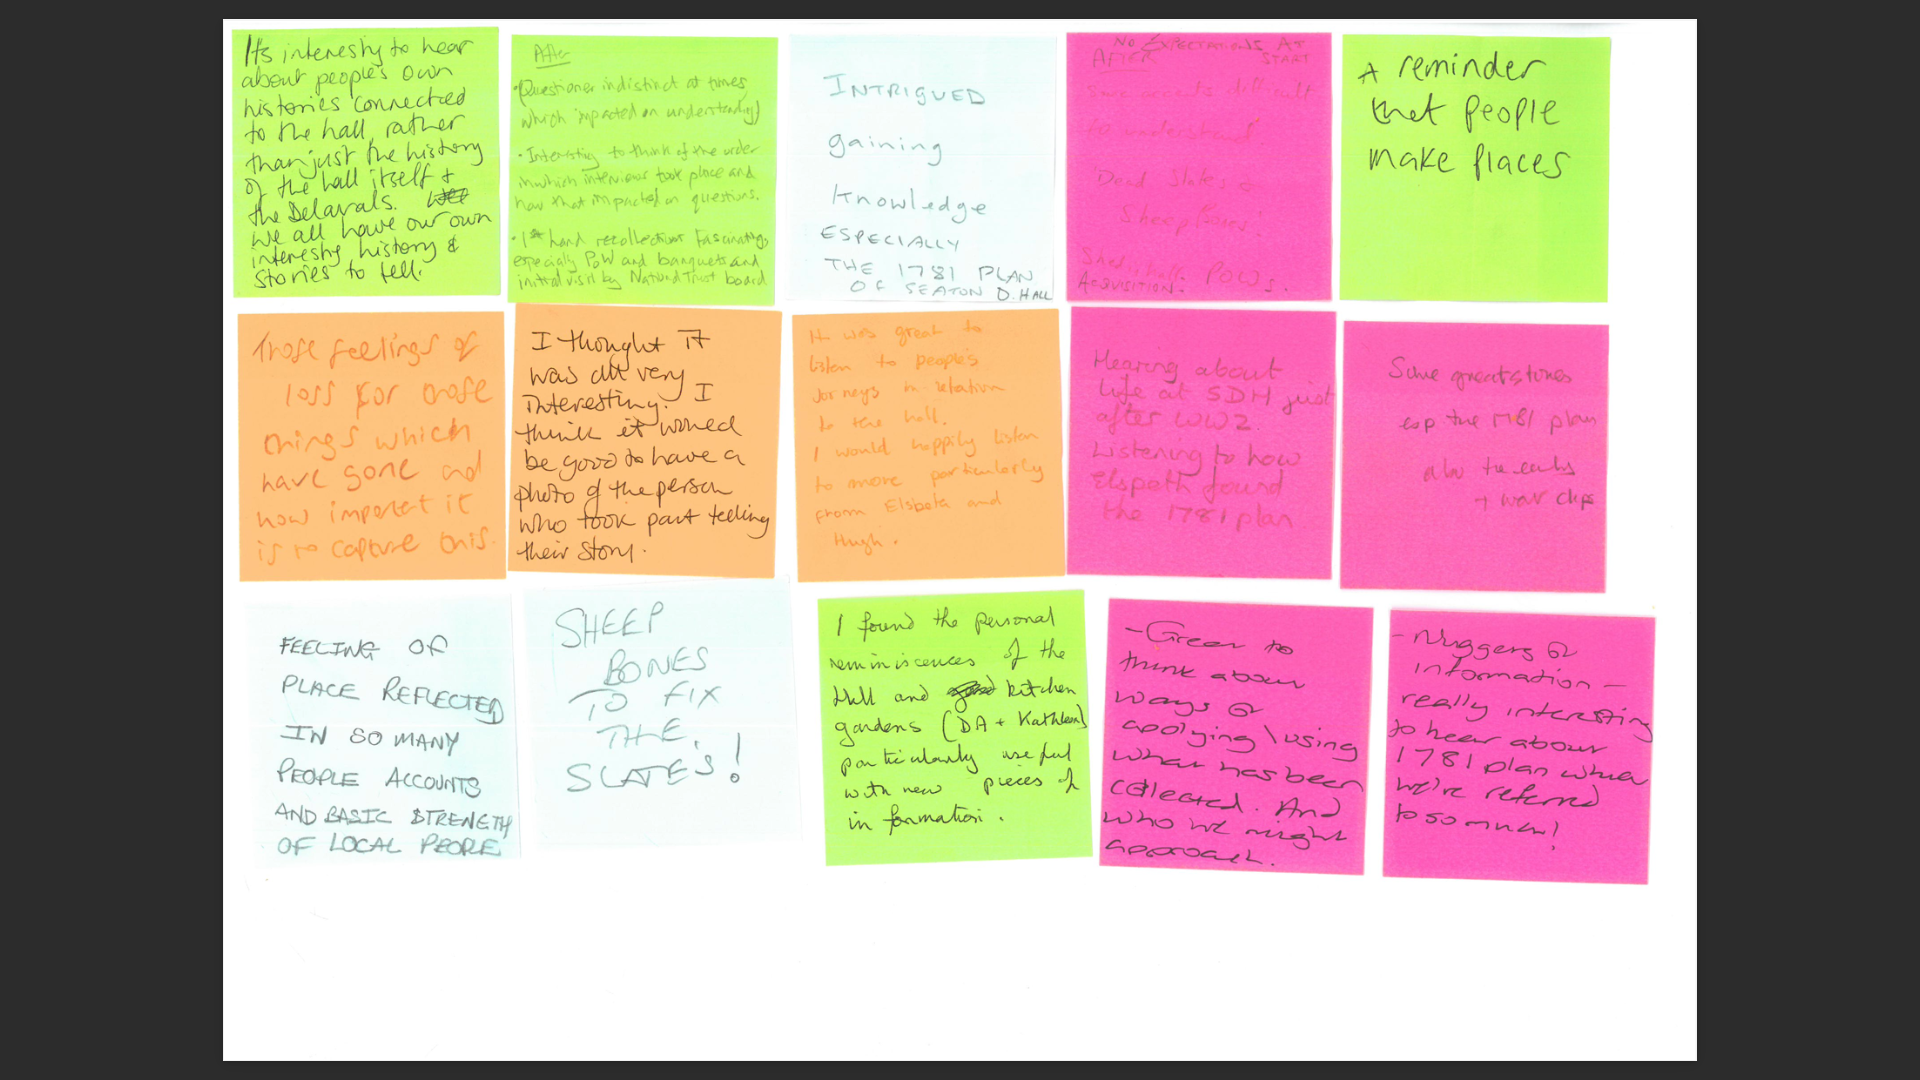 Its interesting to hear
about people's own
histories connected
to the hall, rather
than just the history
of the hall itself +
the Delavals.
we all have our own
interesting history &
stories to tell.
After
• Questioner indistinct at times
which impacted on understanding
• Interesting to think of the order
in which interviews took place and
how that impacted on questions.
• 1st hand recollections fascinating,
especially PoW and banquets and
initial visit by National Trust board
INTRIGUED
gaining
knowledge
ESPECIALLY
THE 1781 PLAN
OF SEATON D. HALL
NO EXPECTATIONS AT
START
AFTER
Some accents difficult
to understand
'Dead Slates &
Sheep Bones'
POWs.
ACQUISITION.
A reminder
that people
make places
Those feelings of
loss for those
things which
have gone and
how important it
is to capture this.
I thought it
was all very
interesting. I
think it would
be good to have a
photo of the person
who took part telling
their story.
It was great to
listen to people's
journeys in relation
to the hall.
I would happily listen
to more particularly
from Elsbeta and
Hugh.
Hearing about
life at SDH just
after WW2.
Listening to how
Elspeth found
the 1781 plan
Some great stories
esp the 1781 plan
also the early
+ war clips
FEELING OF
PLACE REFLECTED
IN SO MANY
PEOPLE ACCOUNTS
AND BASIC STRENGTH
OF LOCAL PEOPLE
SHEEP
BONES
TO FIX
THE
SLATES!
I found the personal
reminiscences of the
Hall and kitchen
gardens (DA + Kathleen)
particularly useful
with new pieces of
information.
- Great to
think about
ways of
applying \ using
what has been
collected. And
who we might
approach.
- Nuggets of
information -
really interesting
to hear about
1781 plan which
we're referred
to so much!